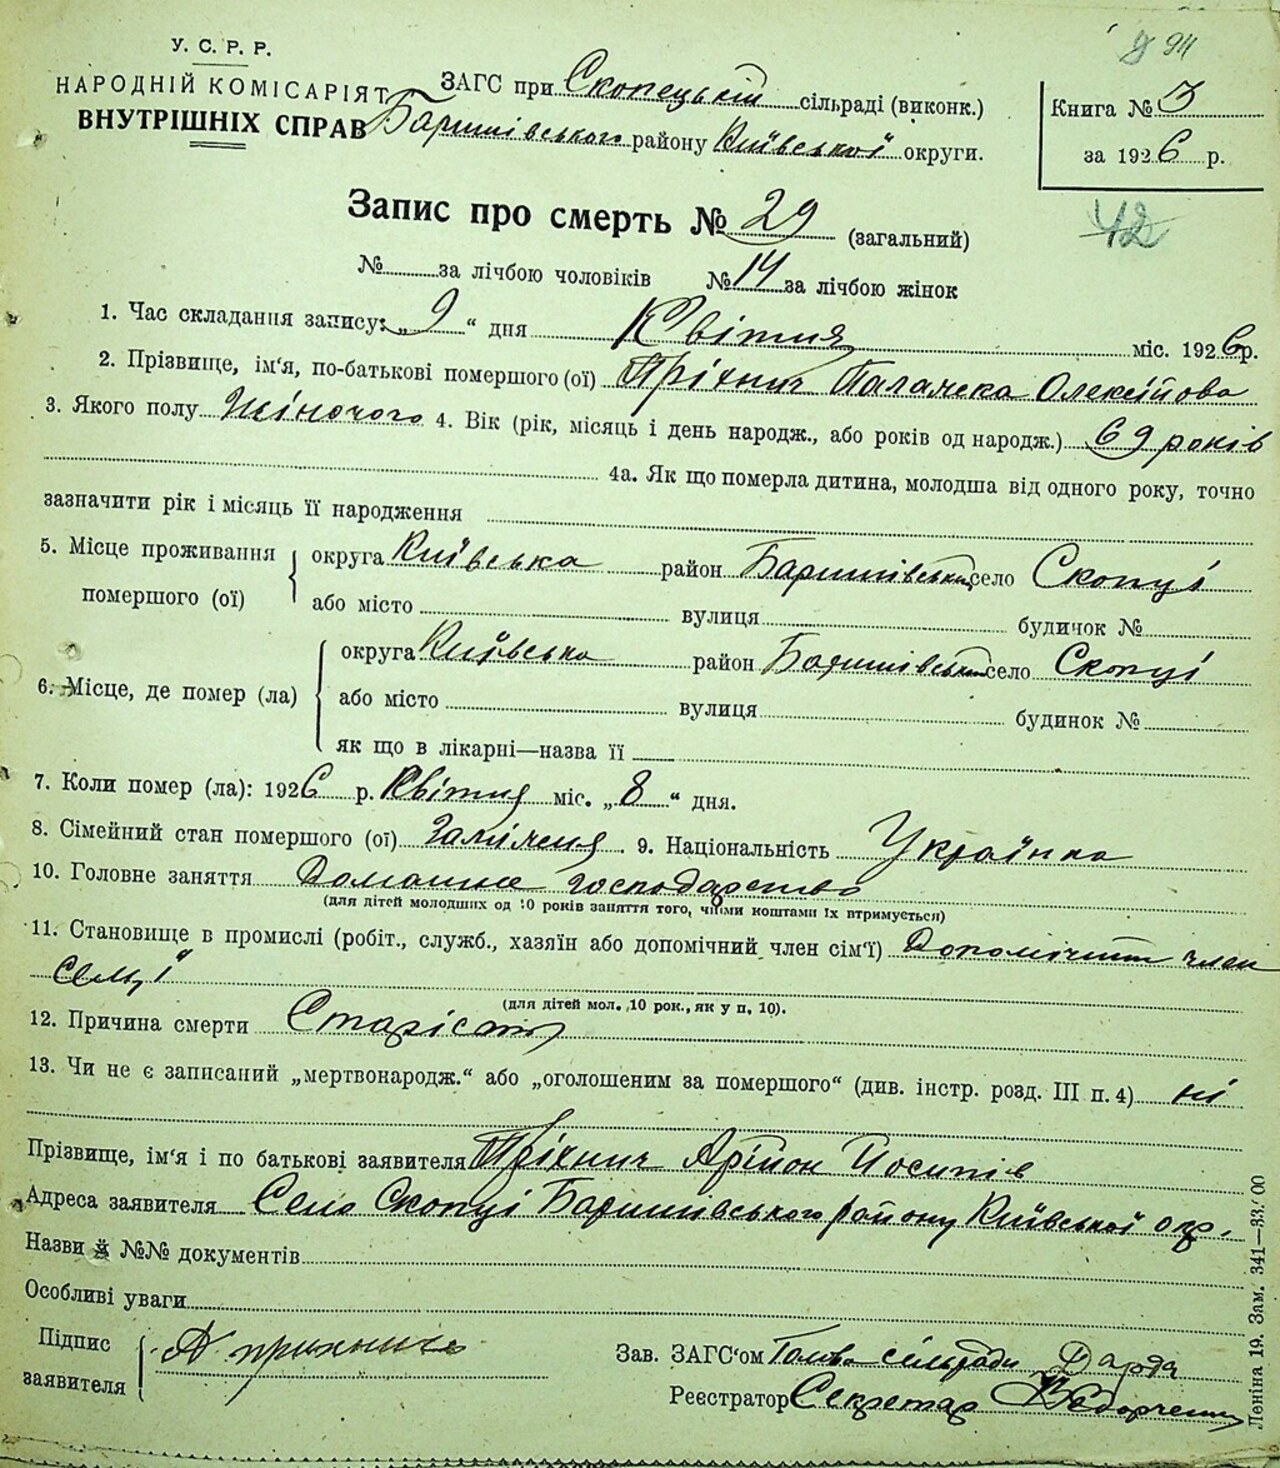 94
У. С. Р. Р.
НАРОДНІЙ КОМІСАРІЯТ
ВНУТРІШНІХ СПРАВ
ЗАГС при Скопецькій сільраді (виконк.)
Баришівського району Київської округи.
Книга № 3
за 1926 р.
42
Запис про смерть № 29 (загальний)
№ за лічбою чоловіків № 14 за лічбою жінок
1. Час складання запису: „9“ дня Квітня міс. 1926р.
2. Прізвище, ім‘я, по-батькові помершого (ої) Пріхнич Палажка Олексійова
3. Якого полу Жіночого 4. Вік (рік, місяць і день народж., або років од народж.) 69 років
4а. Як що померла дитина, молодша від одного року, точно
зазначити рік і місяць її народження
5. Місце проживання помершого (ої) округа Київська район Баришівський село Скопці
або місто вулиця будичок №
6. Місце, де помер (ла) округа Київська район Баришівський село Скопці
або місто вулиця будинок №
як що в лікарні—назва її
7. Коли помер (ла): 1926 р. Квітня міс. „8“ дня.
8. Сімейний стан помершого (ої) Заміжня. 9. Національність Українка
10. Головне заняття Домашнє господарство
(для дітей молодших од 10 років заняття того, чиїми коштами їх втримується)
11. Становище в промислі (робіт., служб., хазяїн або допомічний член сім‘ї) Допомічний член
семʼї
(для дітей мол. 10 рок., як у п. 10).
12. Причина смерти Старість
13. Чи не є записаний „мертвонародж.“ або „оголошеним за помершого“ (див. інстр. розд. III п. 4) ні
Прізвище, ім‘я і по батькові заявителя Пріхнич Арійон Йосипів
Адреса заявителя Село Скопці Баришівського району Київської окр.
Назви й №№ документів
Особливі уваги
Підпис заявителя А прихнич
Зав. ЗАГС‘ом Голова сільради Дарда
Реєстратор Секретар Федорченко
Леніна 19. Зам. 341—33.000